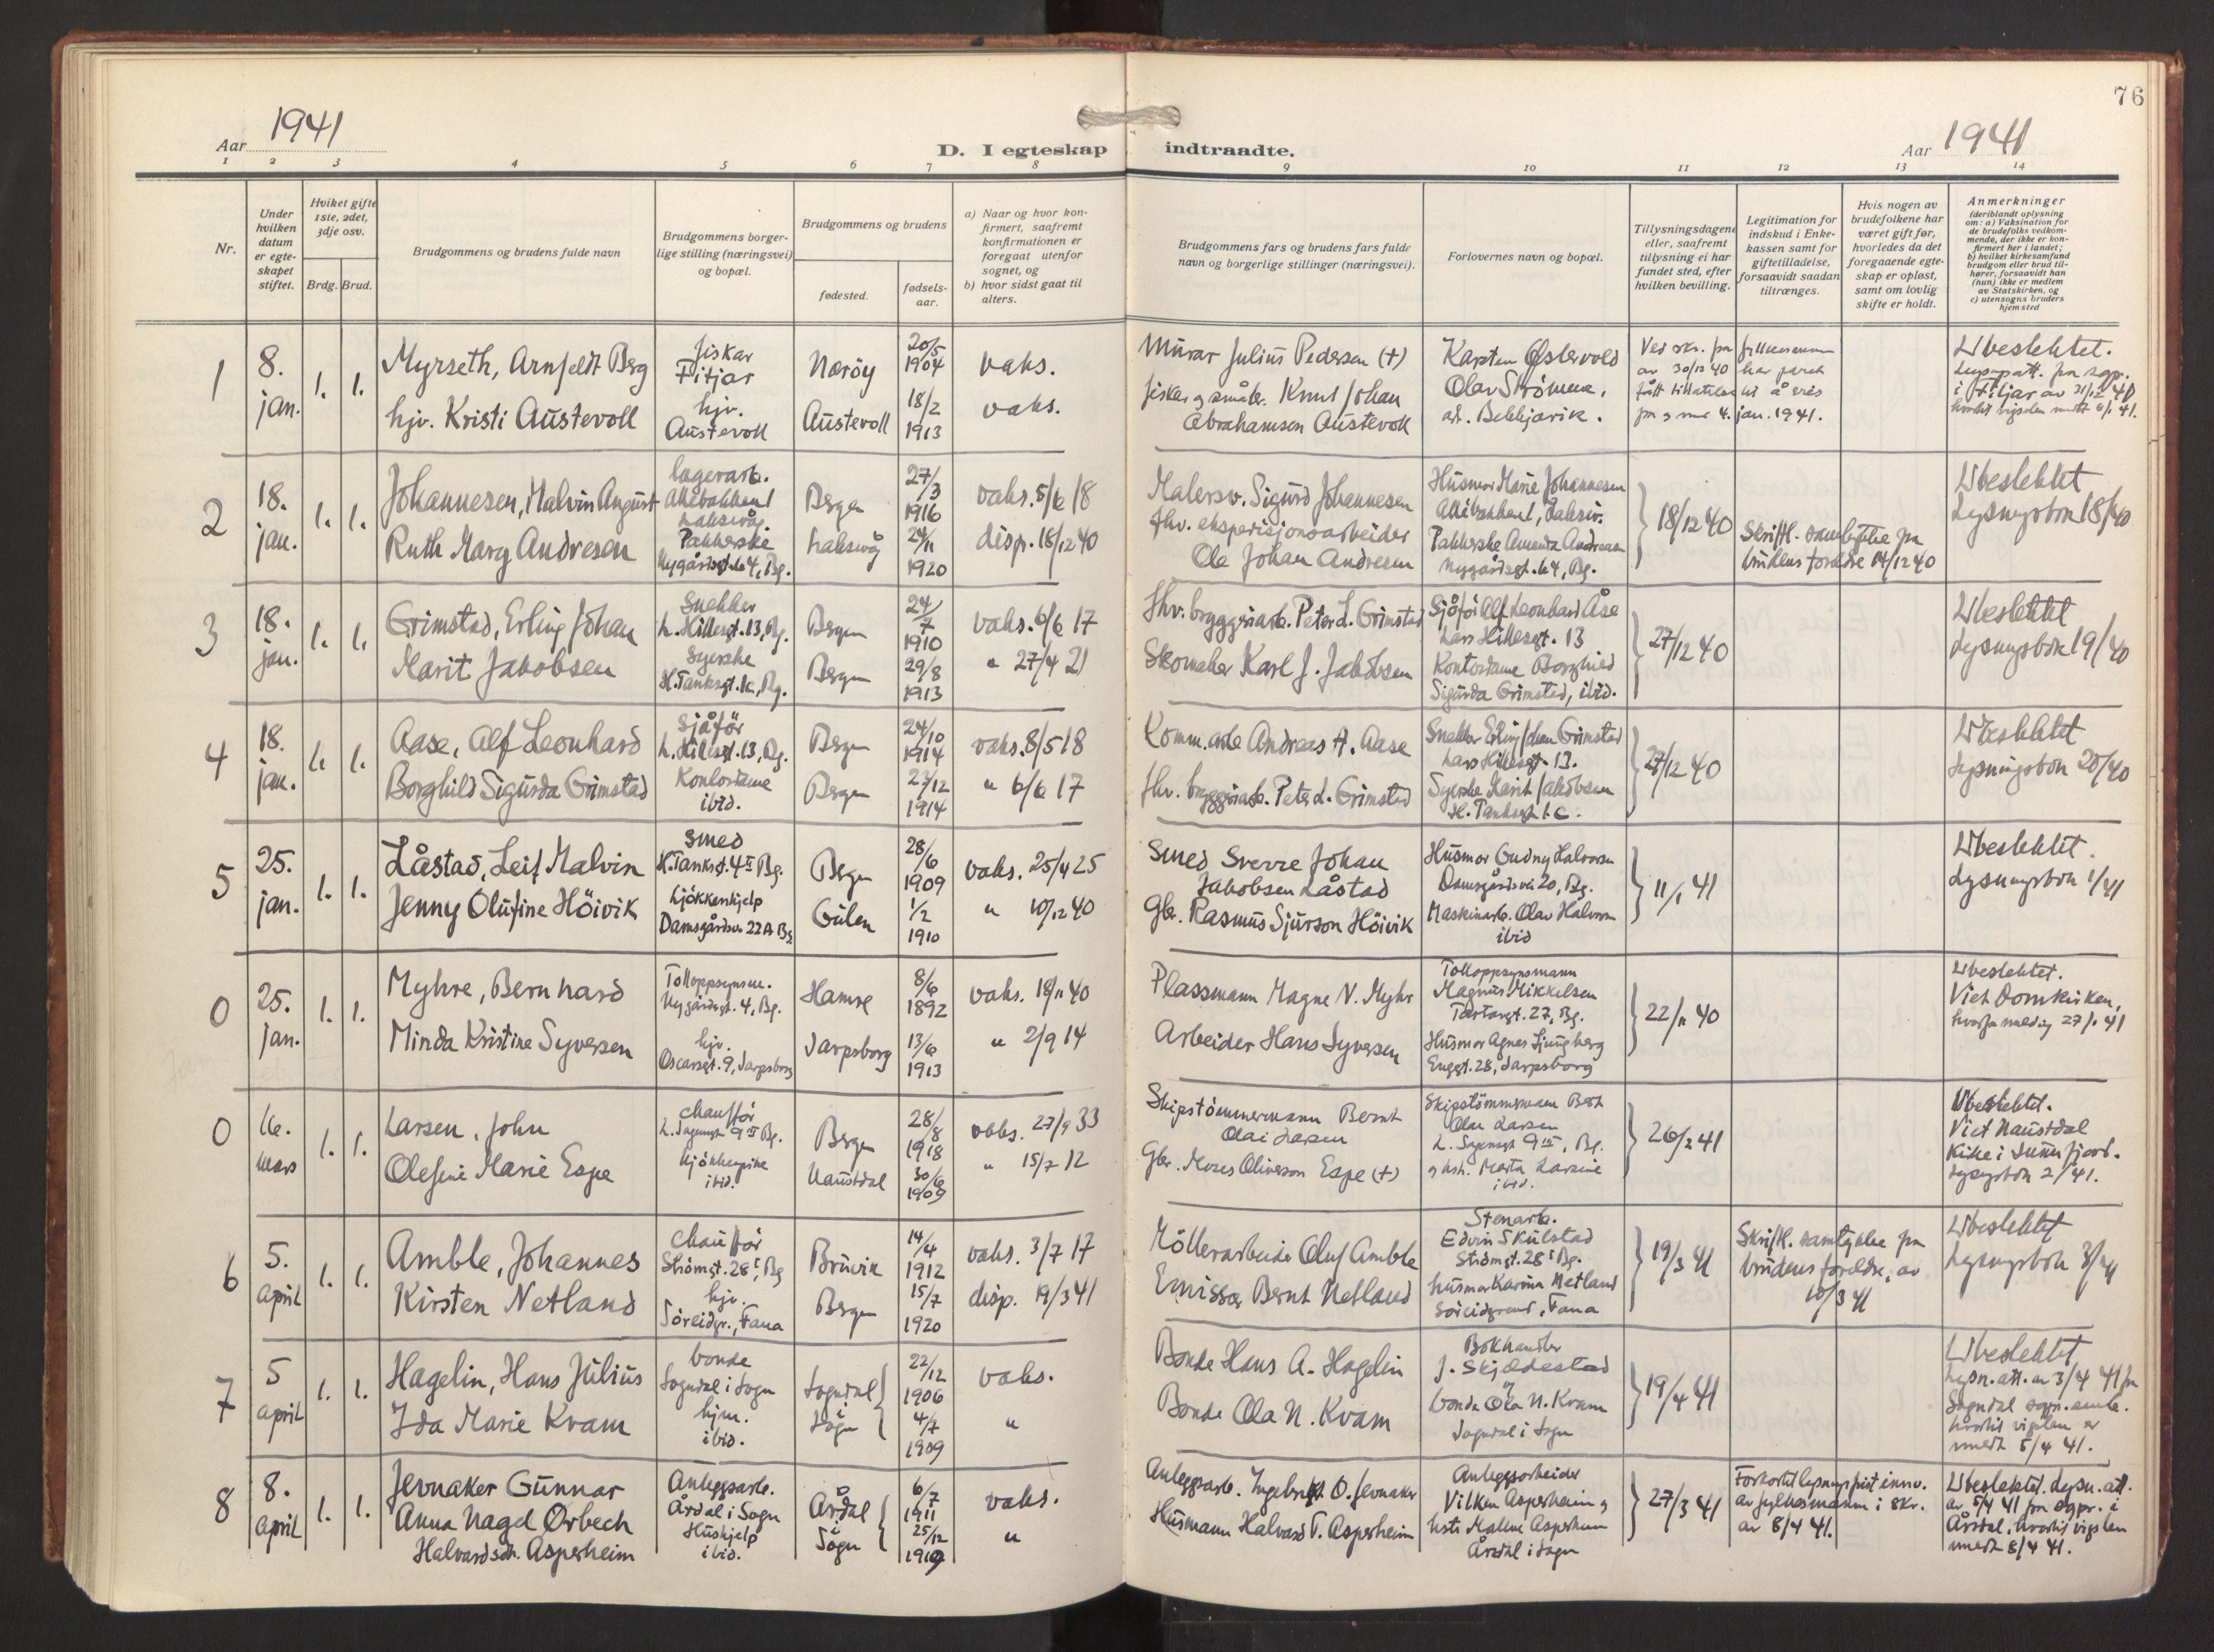 76
1941
1941
Aar
D. I egteskap
indtraadte.
Aar
1 2 3 4 5 6 7 8 9 10 11 12 13 14
Nr.
Under
hvilken
datum
er egte-
skapet
stiftet.
Hviket gifte
1ste, 2det,
3dje osv.
Brdg. Brud.
Brudgommens og brudens fulde navn
Brudgommens borger-
lige stilling (næringsvei)
og bopæl.
Brudgommens og brudens
fødested.
fødsels-
aar.
a) Naar og hvor kon-
firmert, saafremt
konfirmationen er
foregaat utenfor
sognet, og
b) hvor sidst gaat til
alters.
Brudgommens fars og brudens fars fulde
navn og borgerlige stillinger (næringsvei).
Forlovernes navn og bopæl.
Tillysningsdagene
eller, saafremt
tillysning ei har
fundet sted, efter
hvilken bevilling.
Legitimation for
indskud i Enke-
kassen samt for
giftetilladelse,
forsaavidt saadan
tiltrænges.
Hvis nogen av
brudefolkene har
været gift før,
hvorledes da det
foregaaende egte-
skap er opløst,
samt om lovlig
skifte er holdt.
Anmerkninger
(deriblandt oplysning
om: a) Vaksination for
de brudefolks vedkom-
mende, der ikke er kon-
firmert her i landet;
b) hvilket kirkesamfund
brudgom eller brud til-
hører, forsaavidt han
(hun) ikke er medlem
av Statskirken, og
c) utensogns bruders
hjemsted
1
8.
jan.
1. 1.
Myrseth, Arnfeldt Berg
hjv. Kristi Austevoll
fiskar
Fitjar
hjv.
Austevoll
Nærøy
Austevoll
20/5
1904
18/2
1913
vaks.
vaks.
Murar Julius Pedersen (+)
fiskar og småbr. Knut Johan
Abrahamsen Austevoll
Karsten Østervold
Olav Strömme,
ad. Bekkjarvik.
Ved skr. fra fylkesmannen
av 30/12 40 har paret
fått tillatelse til å vies
4. jan. 1941.
Ubeslektet.
i Fitjar av 31/12 40
2
18.
jan.
1. 1.
Johannesen, Malvin August
Ruth Marg Andresen
lagerarb.
Laksevåg.
Pakkerske
Nygårdsgt. 64, Bg.
Bergen
Laksevåg
27/3
1916
24/11
1920
vaks. 5/6 18
disp. 18/12 40
Malersv. Sigurd Johannesen
fhv. ekspedisjonsarbeider
Ole Johan Andresen
Husmor Marie Johannesen
Pakkerske Amanda Andresen
Nygårdsgt. 64, Bg.
18/12 40
Skriftl. samtykke fra
brudens foreldre 14/12 40
Ubeslektet
Lysningsbok 18/40
3
18.
jan.
1. 1.
Grimstad, Erling Johan
Marit Jakobsen
Snekker
L. Hillesgt. 13, Bg.
Syerske
H. Tanksgt. 1c, Bg.
Bergen
Bergen
24/7
1910
29/8
1913
vaks. 6/6 17
" 27/4 21
fhv. bryggeriarb. Peter L. Grimstad
Skomaker Karl J. Jakobsen
Sjåför Alf Leonhard Åse
Lars Hillesgt. 13
Kontordame Borghild
Sigurda Grimstad, ibid.
27/12 40
Ubeslektet
Lysningsbok 19/40
4
18.
jan.
1. 1.
Aase, Alf Leonhard
Borghild Sigurda Grimstad
Sjåför
L. Hillesgt. 13, Bg.
Kontordame
ibid.
Bergen
Bergen
24/10
1914
23/12
1914
vaks. 8/5 18
" 6/6 17
Komm.arb. Andreas A. Aase
fhv. bryggeriarb. Peter L. Grimstad
Snekker Erling Johan Grimstad
Lars Hillesgt. 13.
Syerske Marit Jakobsen
H. Tanksgt. 1c.
27/12 40
Ubeslektet
Lysningsbok 20/40
5
25.
jan.
1. 1.
Låstad, Leif Malvin
Jenny Olufine Höivik
Smed
H. Tanksgt. 4 II Bg.
kjökkenhjelp
Damsgårdsv. 22A Bg
Bergen
Gulen
28/6
1909
1/2
1910
vaks. 25/4 25
" 10/12 40
Smed Sverre Johan
Jakobsen Låstad
Gbr. Rasmus Sjurson Höivik
Husmor Gudny Halvorsen
Damsgårdsvei 20, Bg.
Maskinarb. Olav Halvorsen
ibid
11/1 41
Ubeslektet.
Lysningsbok 1/41
0
25.
jan.
1. 1.
Myhre, Bernhard
Minda Kristine Syversen
Tolloppsynsm.
Nygårdsgt. 4, Bg.
hjv.
Oscarsgt. 9, Sarpsborg
Hamre
Sarpsborg
8/6
1892
13/6
1913
vaks. 18/11 40
" 2/9 14
Plassmann Magne N. Myhre
Arbeider Hans Syversen
Tolloppsynsmann
Magnus Mikkelsen
27, Bg.
Husmor Agnes Ljungberg
Enggt. 28, Sarpsborg
22/11 40
Ubeslektet.
Viet Domkirken,
27/1 41
0
16.
mars
1. 1.
Larsen, John
Olefine Marie Espe
chauffør
L. Sagengt 9 III Bg.
kjökkenpike
ibid.
Bergen
Naustdal
28/8
1918
30/6
1909
vaks. 27/9 33
" 15/7 12
Skipstömmermann Bernt
Olai Larsen
Gbr. Moses Oliverson Espe (+)
Skipstömmermann Bernt
Olai Larsen
L. Sagengt 9 III, Bg.
og hst. Marta Larsine
ibid.
26/2 41
Ubeslektet.
Viet Naustdal
Kirke i Sunnfjord.
Lysningsbok 2/41.
6
5.
april
1. 1.
Amble, Johannes
Kirsten Netland
chauffør
Strömgt. 28 I, Bg
hjv.
Söreidgr., Fana
Bruvik
Bergen
14/4
1912
15/7
1920
vaks. 3/7 17
disp. 19/3 41
Möllerarbeider Oluf Amble
Emissær Bernt Netland
Stenarb.
Edvin Skulstad
Strömgt. 28 I Bg.
husmor Karina Netland
Söreidgrend, Fana
19/3 41
Skriftl. samtykke fra
brudens foreldre, av
10/3 41
Ubeslektet
Lysningsbok 3/41
7
5
april
1. 1.
Hagelin, Hans Julius
Ida Marie Kvam
bonde
Sogndal i Sogn
hjm.
ibid.
Sogndal
i
Sogn
22/12
1906
4/7
1909
vaks.
"
Bonde Hans A. Hagelin
Bonde Ola N. Kvam
Bokhandler
J. Skjeldestad
og
bonde Ola N. Kvam
Sogndal i Sogn
19/4 41
Ubeslektet
Lysn. att. av 3/4 41 fra
Sogndal sogn.emb.
hvortil vigslen er
meldt 5/4 41.
8
8.
april
1. 1.
Jevnaker Gunnar
Anna Nagel Orbech
Halvardsdtr. Asperheim
Anleggsarb.
Årdal i Sogn
Hushjelp
ibid.
Årdal
i
Sogn
6/7
1911
25/12
1919
vaks.
"
Anleggsarb. Ingebrigt O. Jevnaker
Husmann Halvard T. Asperheim
Anleggsarbeider
Vilken Asperheim og
hstr Malene Asperheim
Årdal i Sogn
27/3 41
Forkortet lysningsfrist innv.
av fylkesmannen i skr.
av 8/4 41.
Ubeslektet. Lysn. att.
av 5/4 41 fra sogpr. i
Årdal, hvortil vigslen
meldt 8/4 41.